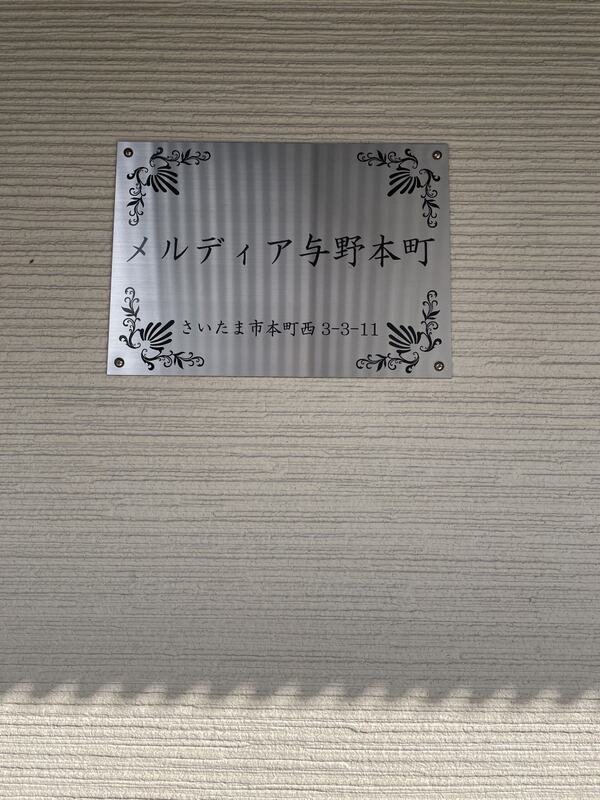 メルディア与野本町
さいたま市本町西3-3-11